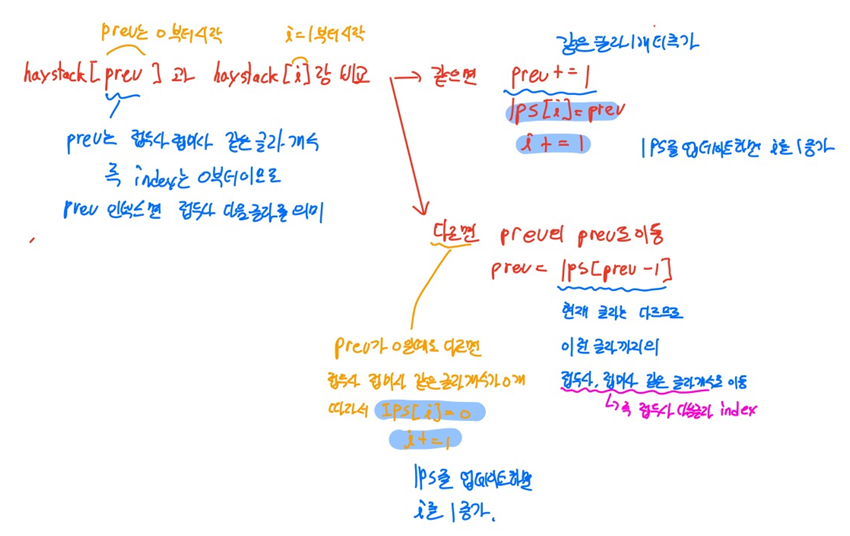 prev는 0부터 시작
i=1부터 시작
haystack[prev]과 haystack[i]랑 비교
같으면
같은 글자 1개 더 추가
prev += 1
lPS[i]=prev
i += 1
lPS를 업데이트하면 i를 1증가
prev는 접두사 접미사 같은 글자 개수
즉 index는 0부터이므로
prev 인덱스면 접두사 다음글자를 의미
다르면 prev의 prev로 이동
prev = lPS[prev -1]
현재 글자는 다르므로
이전 글자까지의
접두사, 접미사 같은 글자개수로 이동
즉 접두사 다음글자 index
prev가 0일때도 다르면
접두사 접미사 같은 글자개수가 0개
따라서 lPS[i]=0
i+=1
lPS를 업데이트하면
i를 1증가.